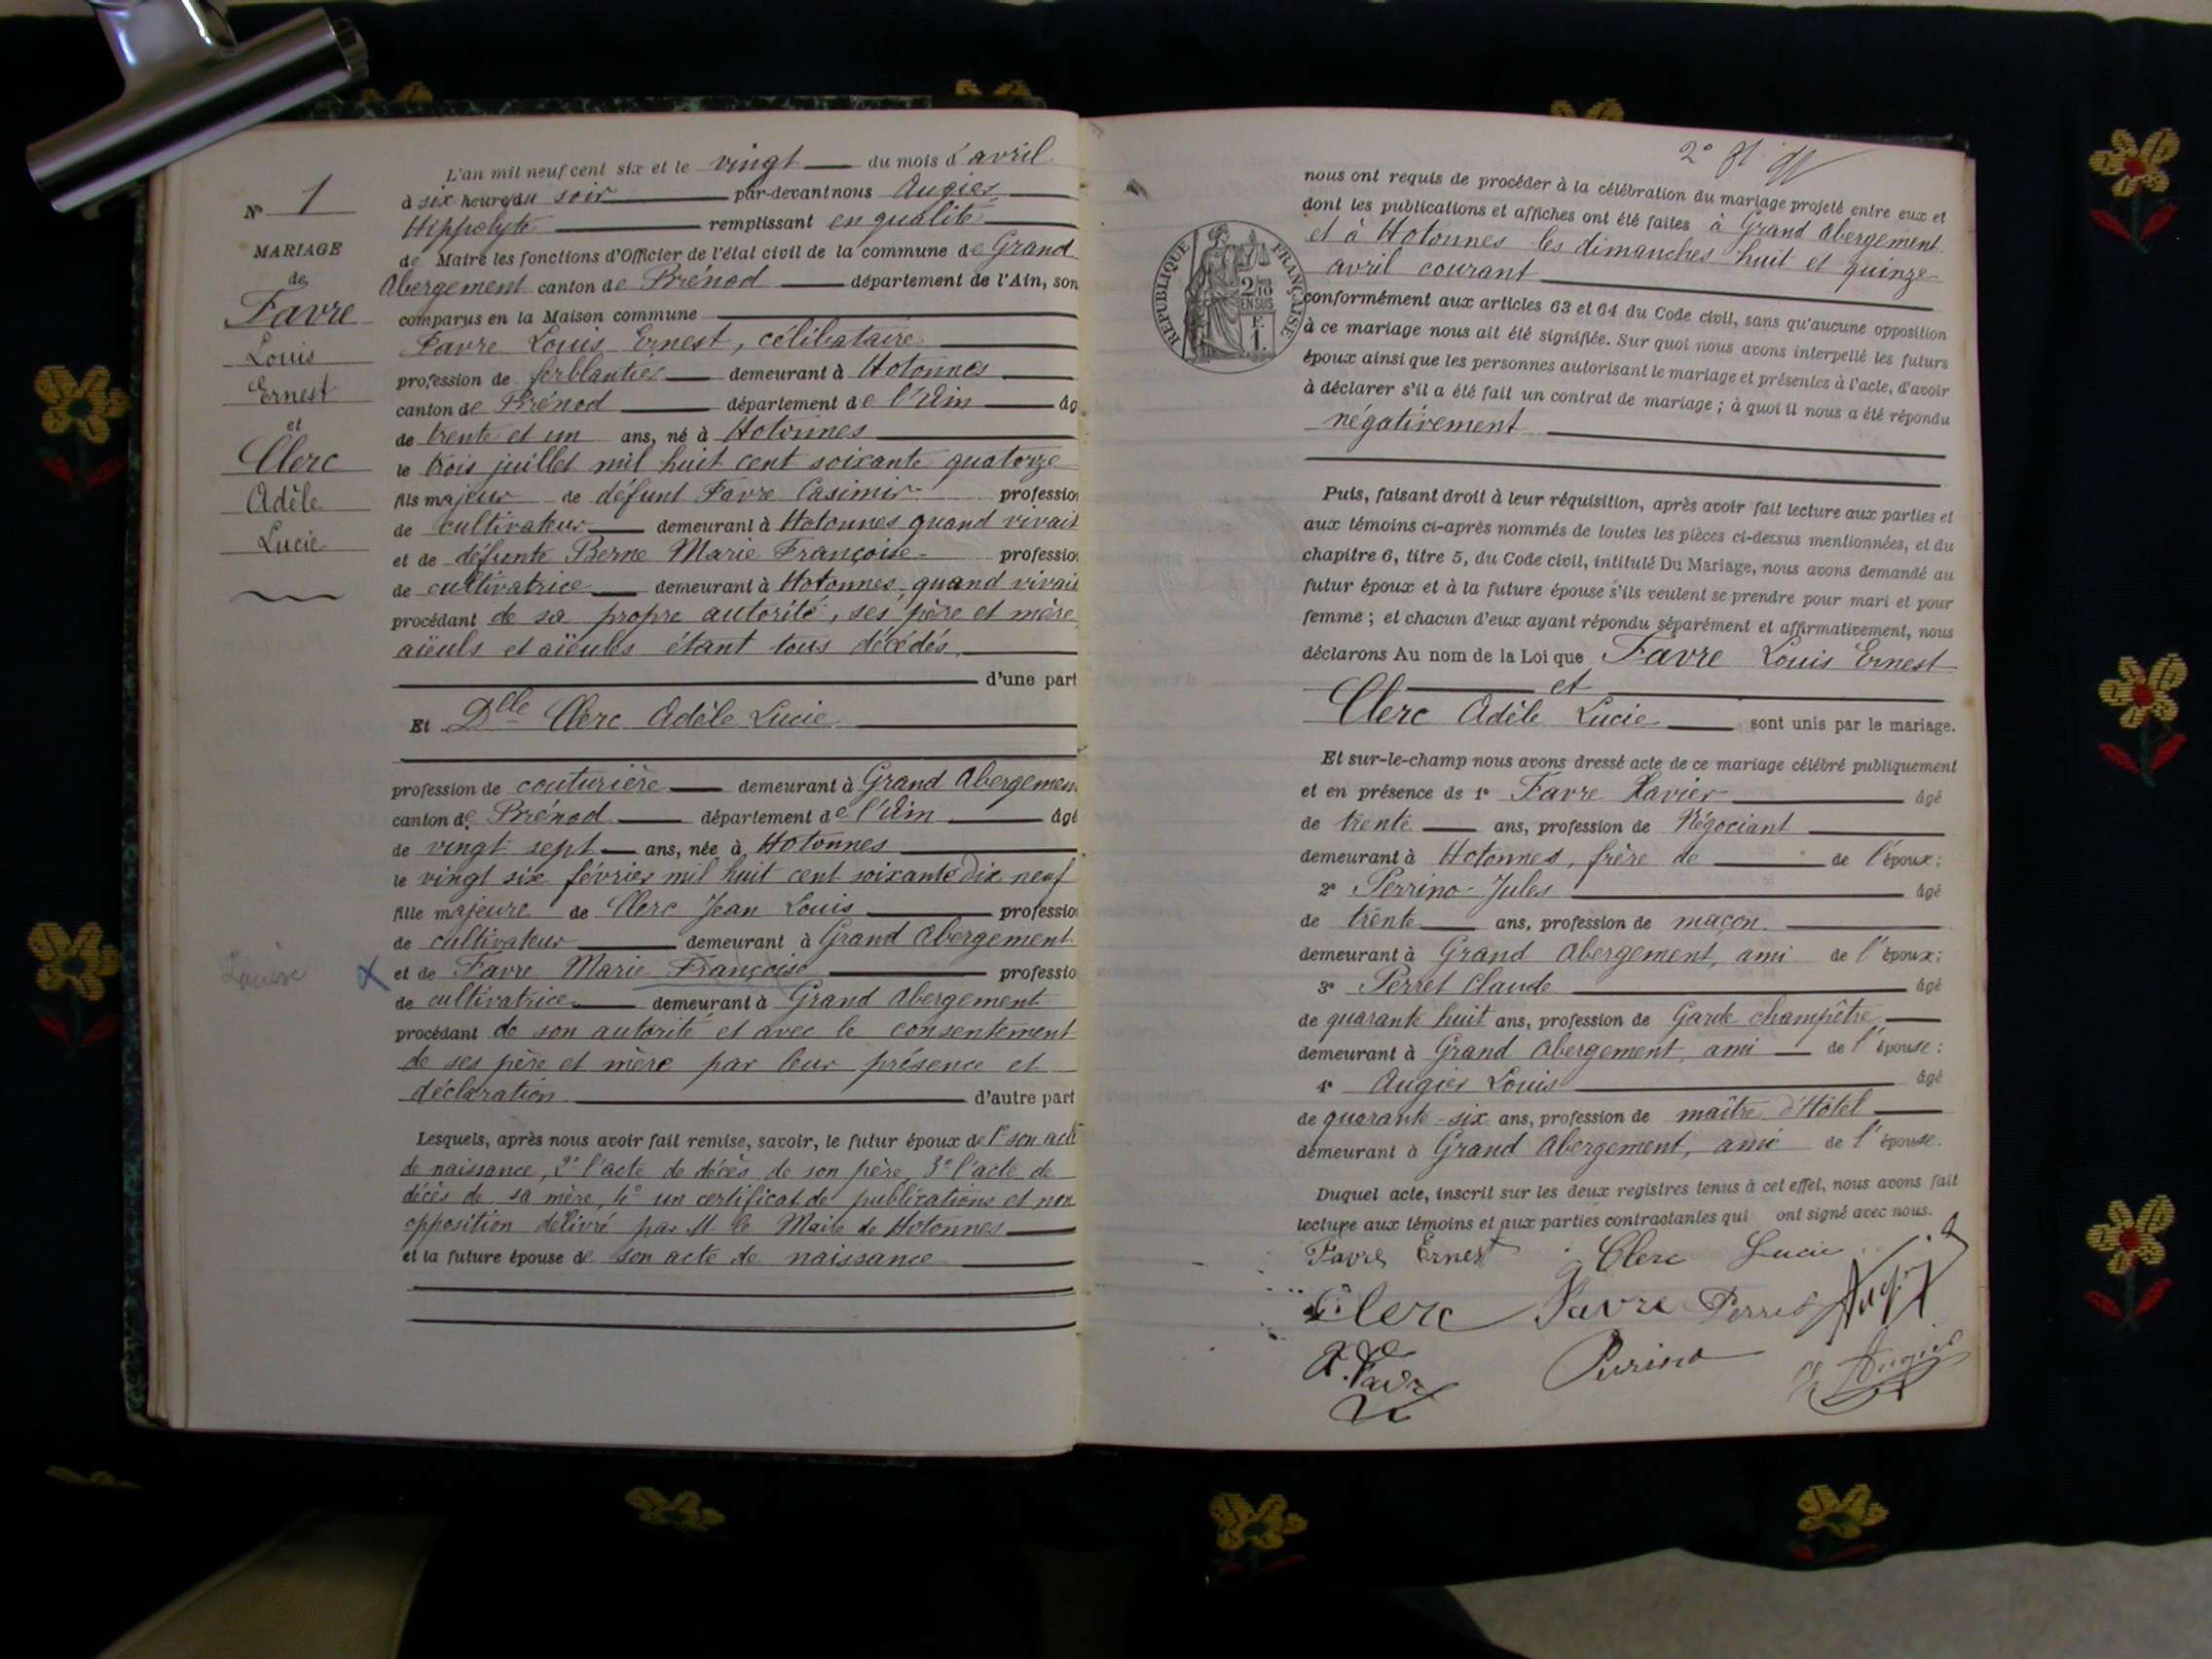 L'an mil neuf cent six et le vingt du mois d'avril
à six heures du soir par-devant nous Augier
Hippolyte remplissant en qualité
de Maire les fonctions d'Officier de l'état civil de la commune de Grand
Abergement canton de Brénod département de l'Ain, son
comparus en la Maison commune
Favre Louis Ernest, célibataire
profession de ferblantier demeurant à Hotonnes
canton de Brénod département de l'Ain âg
de trente et un ans, né à Hotonnes
le trois juillet mil huit cent soixante quatorze
fils majeur de défunt Favre Casimir profession
de cultivateur demeurant à Hotonnes quand vivait
et de défunte Berne Marie Françoise profession
de cultivatrice demeurant à Hotonnes quand vivait
procédant de sa propre autorité, ses père et mère
aïeuls et aïeules étant tous décédés
d'une part
Et Dlle Clerc Adèle Lucie
profession de couturière demeurant à Grand Abergemen
canton de Brénod département de l'Ain âgé
de vingt sept ans, née à Hotonnes
le vingt six février mil huit cent soixante dix neuf
fille majeure de Clerc Jean Louis profession
de cultivateur demeurant à Grand Abergement
et de Favre Marie Françoise professio
de cultivatrice demeurant à Grand Abergement
procédant de son autorité et avec le consentement
de ses père et mère par leur présence et
déclaration d'autre part
Lesquels, après nous avoir fait remise, savoir, le futur époux de 1° son acte
de naissance, 2° l'acte de décès de son père, 3° l'acte de
décès de sa mère, 4° un certificat de publications et non
opposition délivré par M le Maire de Hotonnes
et la future épouse de son acte de naissance
N° 1
MARIAGE
de
Favre
Louis
Ernest
et
Clerc
Adèle
Lucie
Louise
2°
nous ont requis de procéder à la célébration du mariage projeté entre eux et
dont les publications et affiches ont été faites à Grand Abergement
et à Hotonnes les dimanches huit et quinze
avril courant
conformément aux articles 63 et 64 du Code civil, sans qu'aucune opposition
à ce mariage nous ait été signifiée. Sur quoi nous avons interpellé les futurs
époux ainsi que les personnes autorisant le mariage et présentes à l'acte, d'avoir
à déclarer s'il a été fait un contrat de mariage ; à quoi il nous a été répondu
négativement
Puis, faisant droit à leur réquisition, après avoir fait lecture aux parties et
aux témoins ci-après nommés de toutes les pièces ci-dessus mentionnées, et du
chapitre 6, titre 5, du Code civil, intitulé Du Mariage, nous avons demandé au
futur époux et à la future épouse s'ils veulent se prendre pour mari et pour
femme ; et chacun d'eux ayant répondu séparément et affirmativement, nous
déclarons Au nom de la Loi que Favre Louis Ernest
et
Clerc Adèle Lucie sont unis par le mariage.
Et sur-le-champ nous avons dressé acte de ce mariage célébré publiquement
et en présence de 1° Favre Xavier âgé
de trente ans, profession de Négociant
demeurant à Hotonnes, frère de de l'époux;
2° Perrino Jules âgé
de trente ans, profession de maçon
demeurant à Grand Abergement, ami de l'époux;
3° Perret Claude âgé
de quarante huit ans, profession de Garde champêtre
demeurant à Grand Abergement, ami de l'épouse;
4° Augier Louis âgé
de quarante-six ans, profession de maître d'Hôtel
demeurant à Grand Abergement, ami de l'épouse.
Duquel acte, inscrit sur les deux registres tenus à cet effet, nous avons fait
lecture aux témoins et aux parties contractantes qui ont signé avec nous.
Favre Ernest Clerc Lucie
Clerc Favre Perret Augier
Perrino Augier
REPUBLIQUE FRANÇAISE
2/10
EN SUS
F.
1.